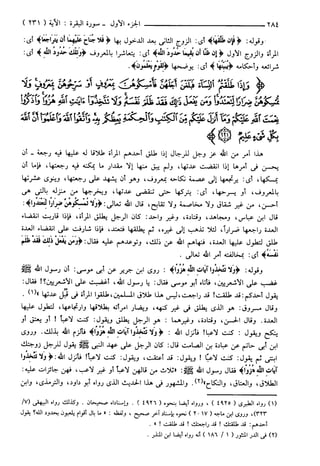 ٢٨٤
الجزء الأول - سورة البقرة : الآية ( ٢٣١ )
وقوله: ﴿ فإن طلقها ﴾ أي: الزوج الثاني بعد الدخول بها ﴿ فلا جناح عليهما أن يتراجعا ﴾ أي:
المرأة والزوج الأول ﴿ إن ظنا أن يقيما حدود الله ﴾ أي: يتعاشرا بالمعروف ﴿ وتلك حدود الله ﴾ أي:
شرائعه وأحكامه ﴿ يبينها ﴾ أي: يوضحها ﴿ لقوم يعلمون ﴾.
﴿ وَإِذَا طَلَّقْتُمُ النِّسَاءَ فَبَلَغْنَ أَجَلَهُنَّ فَأَمْسِكُوهُنَّ بِمَعْرُوفٍ أَوْ سَرِّحُوهُنَّ بِمَعْرُوفٍ وَلَا
تُمْسِكُوهُنَّ ضِرَارًا لِتَعْتَدُوا وَمَنْ يَفْعَلْ ذَلِكَ فَقَدْ ظَلَمَ نَفْسَهُ وَلَا تَتَّخِذُوا آيَاتِ اللَّهِ هُزُوًا وَاذْكُرُوا
نِعْمَتَ اللَّهِ عَلَيْكُمْ وَمَا أَنْزَلَ عَلَيْكُمْ مِنَ الْكِتَابِ وَالْحِكْمَةِ يَعِظُكُمْ بِهِ وَاتَّقُوا اللَّهَ وَاعْلَمُوا أَنَّ اللَّهَ
بِكُلِّ شَيْءٍ عَلِيمٌ ﴾
هذا أمر من الله عز وجل للرجال إذا طلق أحدهم المرأة طلاقا له عليها فيه رجعة - أن
يحسن في أمرها إذا انقضت عدتها، ولم يبق منها إلا مقدار ما يمكنه فيه رجعتها، فإما أن
يمسكها، أي: يرتجعها إلى عصمة نكاحه بمعروف، وهو أن يشهد على رجعتها، وينوي عشرتها
بالمعروف، أو يسرحها، أي: يتركها حتى تنقضي عدتها، ويخرجها من منزله بالتي هي
أحسن، من غير شقاق ولا مخاصمة ولا تقابح، قال الله تعالى: ﴿ ولا تمسكوهن ضرارا لتعتدوا ﴾:
قال ابن عباس، ومجاهد، وقتادة، وغير واحد: كان الرجل يطلق المرأة، فإذا قاربت انقضاء
العدة راجعها ضرارا، لئلا تذهب إلى غيره، ثم يطلقها فتعتد، فإذا شارفت على انقضاء العدة
طلق لتطول عليها العدة، فنهاهم الله عن ذلك، وتوعدهم عليه فقال: ﴿ ومن يفعل ذلك فقد ظلم
نفسه ﴾ أي: بمخالفته أمر الله تعالى.
وقوله: ﴿ ولا تتخذوا آيات الله هزوا ﴾ : روى ابن جرير عن أبي موسى: أن رسول الله ﷺ
غضب على الأشعريين، فأتاه أبو موسى فقال: يا رسول الله، أغضبت على الأشعريين؟! فقال:
يقول أحدكم: قد طلقت! قد راجعت، ليس هذا طلاق المسلمين، طلقوا المرأة في قبل عدتها (١) .
وقال مسروق: هو الذي يطلق في غير كنهه، ويضار امرأته بطلاقها وارتجاعها، لتطول عليها
العدة. وقال الحسن، وقتادة، وغيرهما : هو الرجل يطلق ويقول: كنت لاعبا ! أو يعتق أو
ينكح ويقول : كنت لاعبا! فأنزل الله : ﴿ ولا تتخذوا آيات الله هزوا ﴾ فألزم الله بذلك. وروى
ابن أبي حاتم عن عبادة بن الصامت قال: كان الرجل على عهد النبي ﷺ يقول للرجل زوجتك
ابنتي ثم يقول: كنت لاعبا ! ويقول: قد أعتقت، ويقول: كنت لاعبا! فأنزل الله: ﴿ ولا تتخذوا
آيات الله هزوا ﴾ فقال رسول الله ﷺ: «ثلاث من قالهن لاعبا أو غير لاعب، فهن جائزات عليه:
الطلاق، والعتاق، والنكاح»(٢). والمشهور في هذا الحديث الذي رواه أبو داود، والترمذي، وابن
(١) رواه الطبري ( ٤٩٢٥ ) ، ورواه أيضا بنحوه ( ٤٩٢٦ ) . وإسناداه صحيحان . وكذلك رواه البيهقي (٧/
٣٢٣)، وروى ابن ماجه ( ٢٠١٧ ) نحوه بإسناد آخر صحيح ، ولفظه : « ما بال أقوام يلعبون بحدود الله! يقول
أحدهم: قد طلقتك ! قد راجعتك ! قد طلقتك ! » .
(٢) في الدر المنثور ( ١ / ٢٨٦ ) أنه رواه أيضا ابن المنذر .